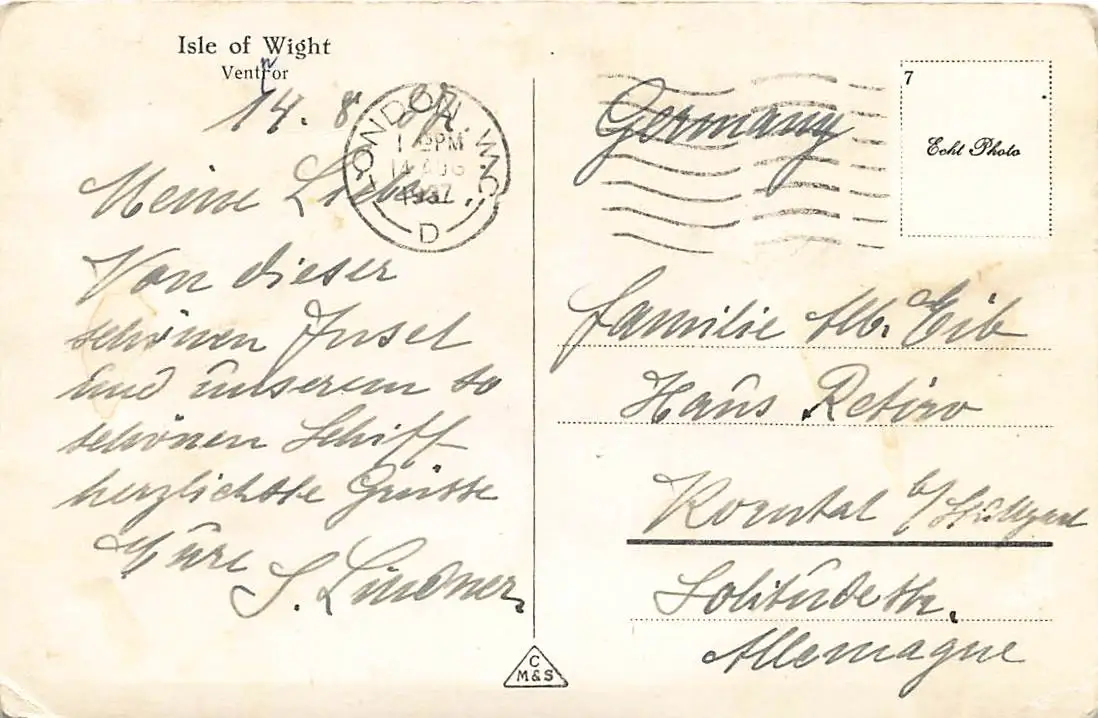 Isle of Wight
Ventnor
14. 8. 37.
Meine Lieben,
Von dieser
schönen Insel
und unserem so
schönen Schiff
herzlichste Grüsse
Eure
S. Lindner
LONDON. W.C.
PM
14 AUG
1937
D
Germany
7
Echt Photo
Familie Alb. Eib
Haus Retiro
Korntal b/ Stuttgart
Solitudestr.
Allemagne
C
M&S